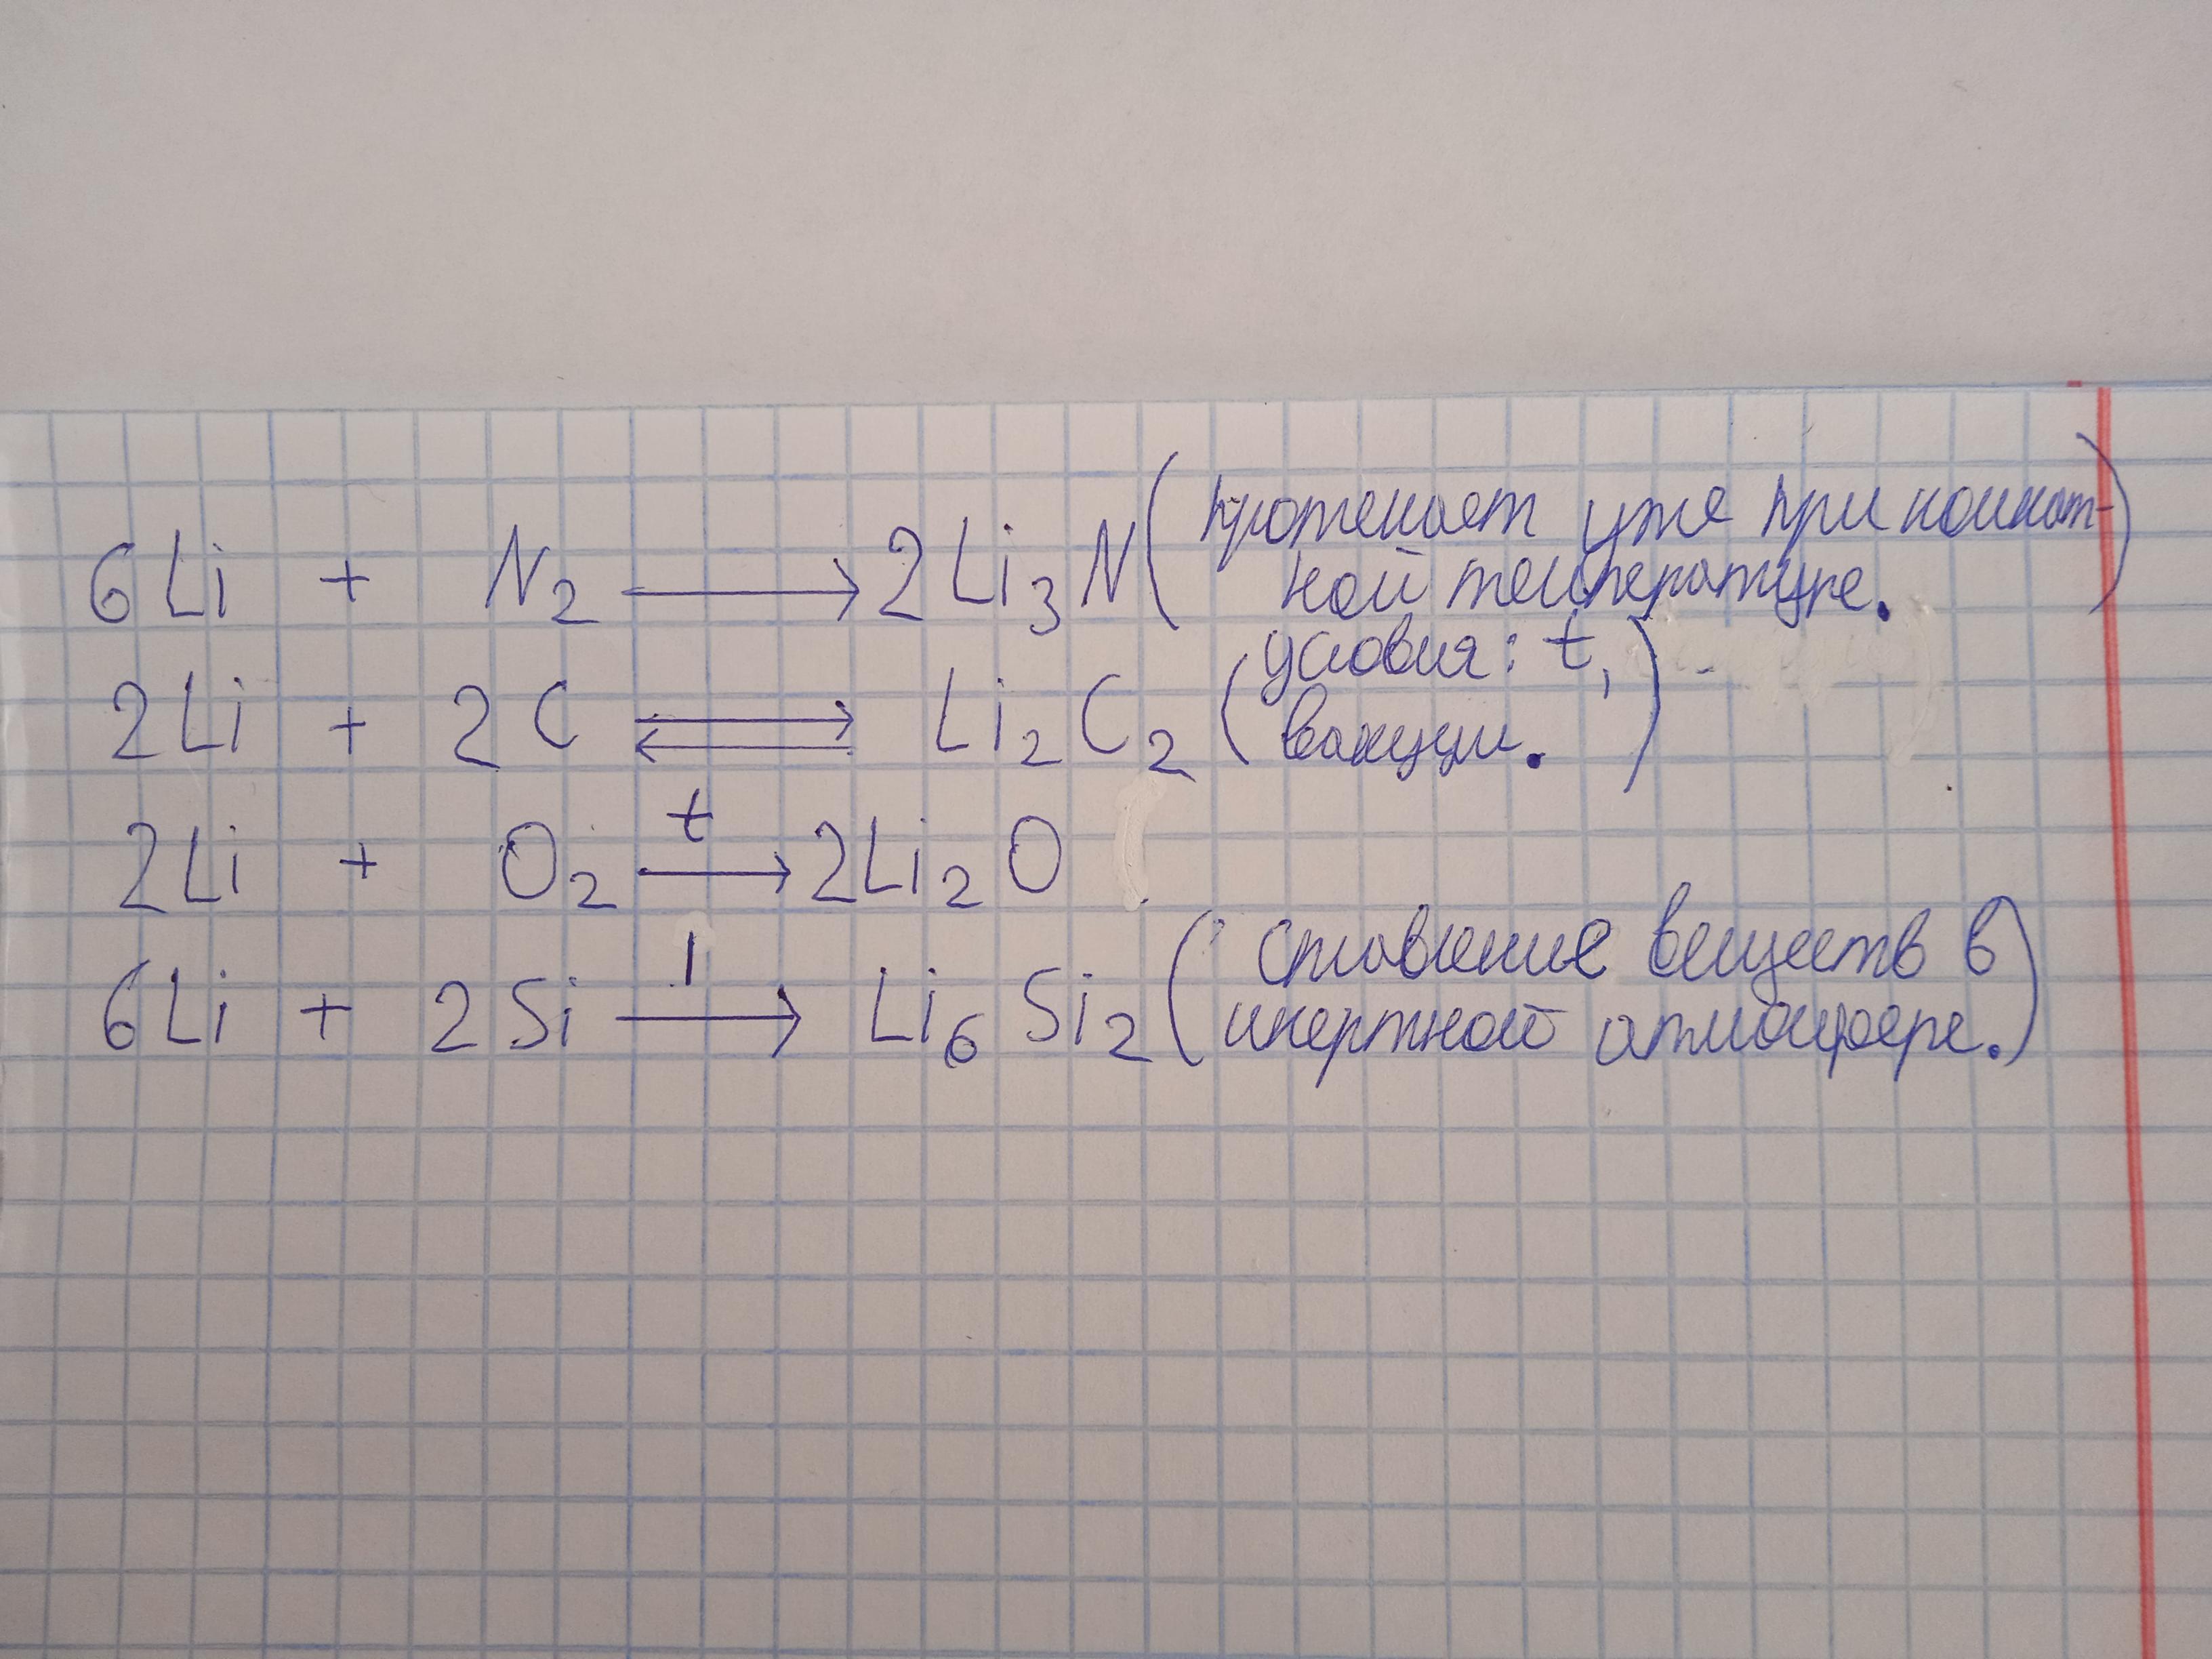 6Li + N₂ → 2Li₃N (протекает уже при комнат-
ной температуре.)
2Li + 2C ⇄ Li₂C₂ (условия: t,
вакуум.)
t
2Li + O₂ → 2Li₂O
1
6Li + 2Si → Li₆Si₂ (сплавление веществ в
инертной атмосфере.)